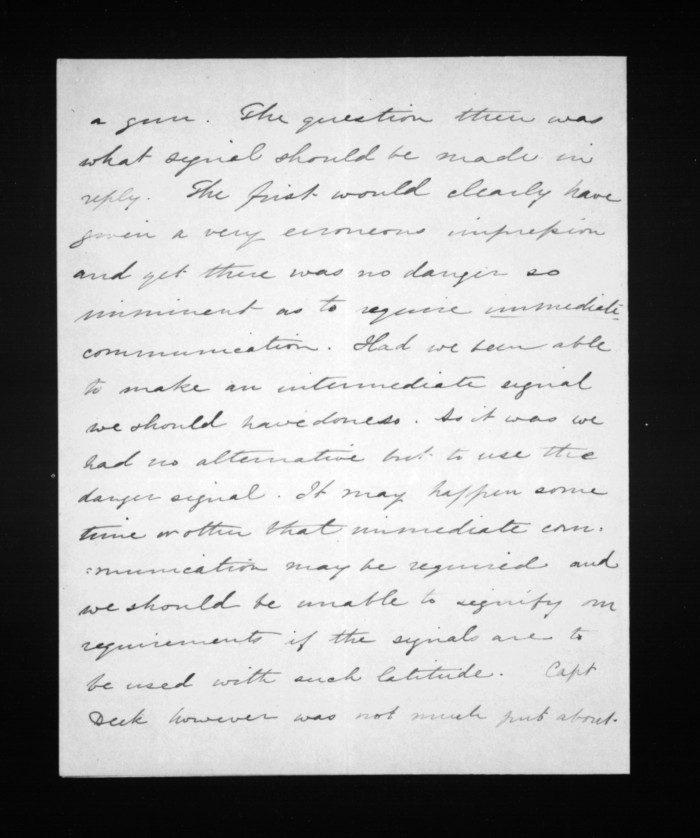 a gun. The question then was
what signal should be made in
reply. The first would clearly have
given a very erroneous impression
and yet there was no danger so
imminent as to require immediate
communication. Had we been able
to make an intermediate signal
we should have done so. As it was we
had no alternative but to use the
danger signal. It may happen some
time or other that immediate com-
=munication may be required and
we should be unable to signify our
requirements if the signals are to
be used with such latitude. Capt
however was not much put about.